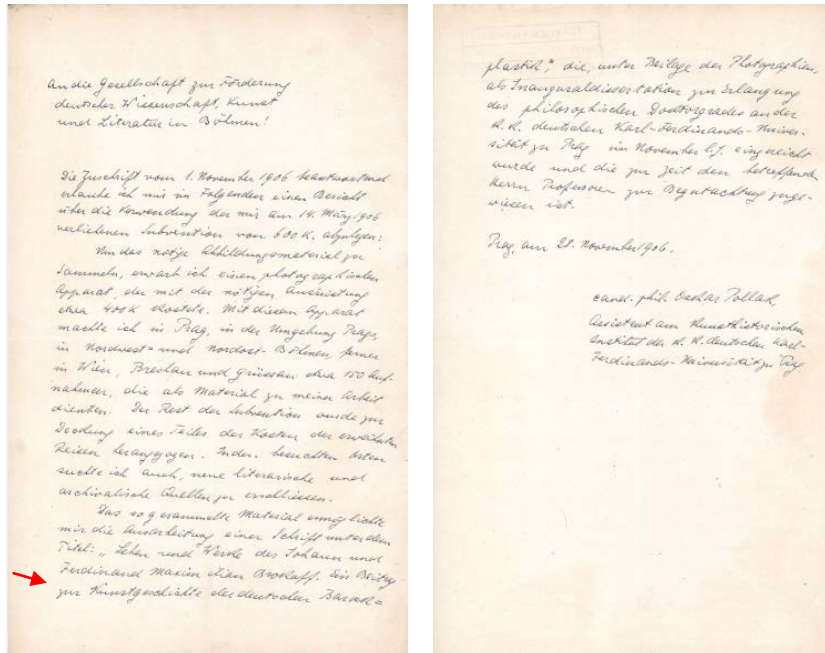 An die Gesellschaft zur Förderung
deutscher Wissenschaft, Kunst
und Literatur in Böhmen!
Die Zuschrift vom 1. November 1906 beantwortend
erlaube ich mir im Folgenden einen Bericht
über die Verwendung der mir am 14. März 1906
verliehenen Subvention von 600 K. abzulegen:
Um das nötige Abbildungsmaterial zu
sammeln, erwarb ich einen photographischen
Apparat, der mit der nötigen Ausrüstung
etwa 400 K kostete. Mit diesem Apparat
machte ich in Prag, in der Umgebung Prags,
in Nordwest- und Nordost-Böhmen, ferner
in Wien, Breslau und Grüssau etwa 150 Auf-
nahmen, die als Material zu meiner Arbeit
dienten. Der Rest der Subvention wurde zur
Deckung eines Teiles der Kosten der erwähnten
Reisen herangezogen. In den besuchten Orten
suchte ich auch, neue literarische und
archivalische Quellen zu erschliessen.
Das so gesammelte Material ermöglichte
mir die Ausarbeitung einer Schrift unter dem
Titel: „Leben und Werke des Johann und
Ferdinand Maximilian Brokoff. Ein Beitrag
zur Kunstgeschichte der deutschen Barock=
plastik", die, unter Beilage der Photographien,
als Inauguraldissertation zur Erlangung
des philosophischen Doktorgrades an der
K. K. deutschen Karl-Ferdinands-Univer-
sität zu Prag im November l. J. eingereicht
wurde und die zur Zeit den betreffenden
Herrn Professoren zur Begutachtung zuge-
wiesen ist.
Prag, am 28. November 1906.
cand. phil. Oskar Pollak,
Assistent am Kunsthistorischen
Institut der K. K. deutschen Karl-
Ferdinands-Universität zu Prag.